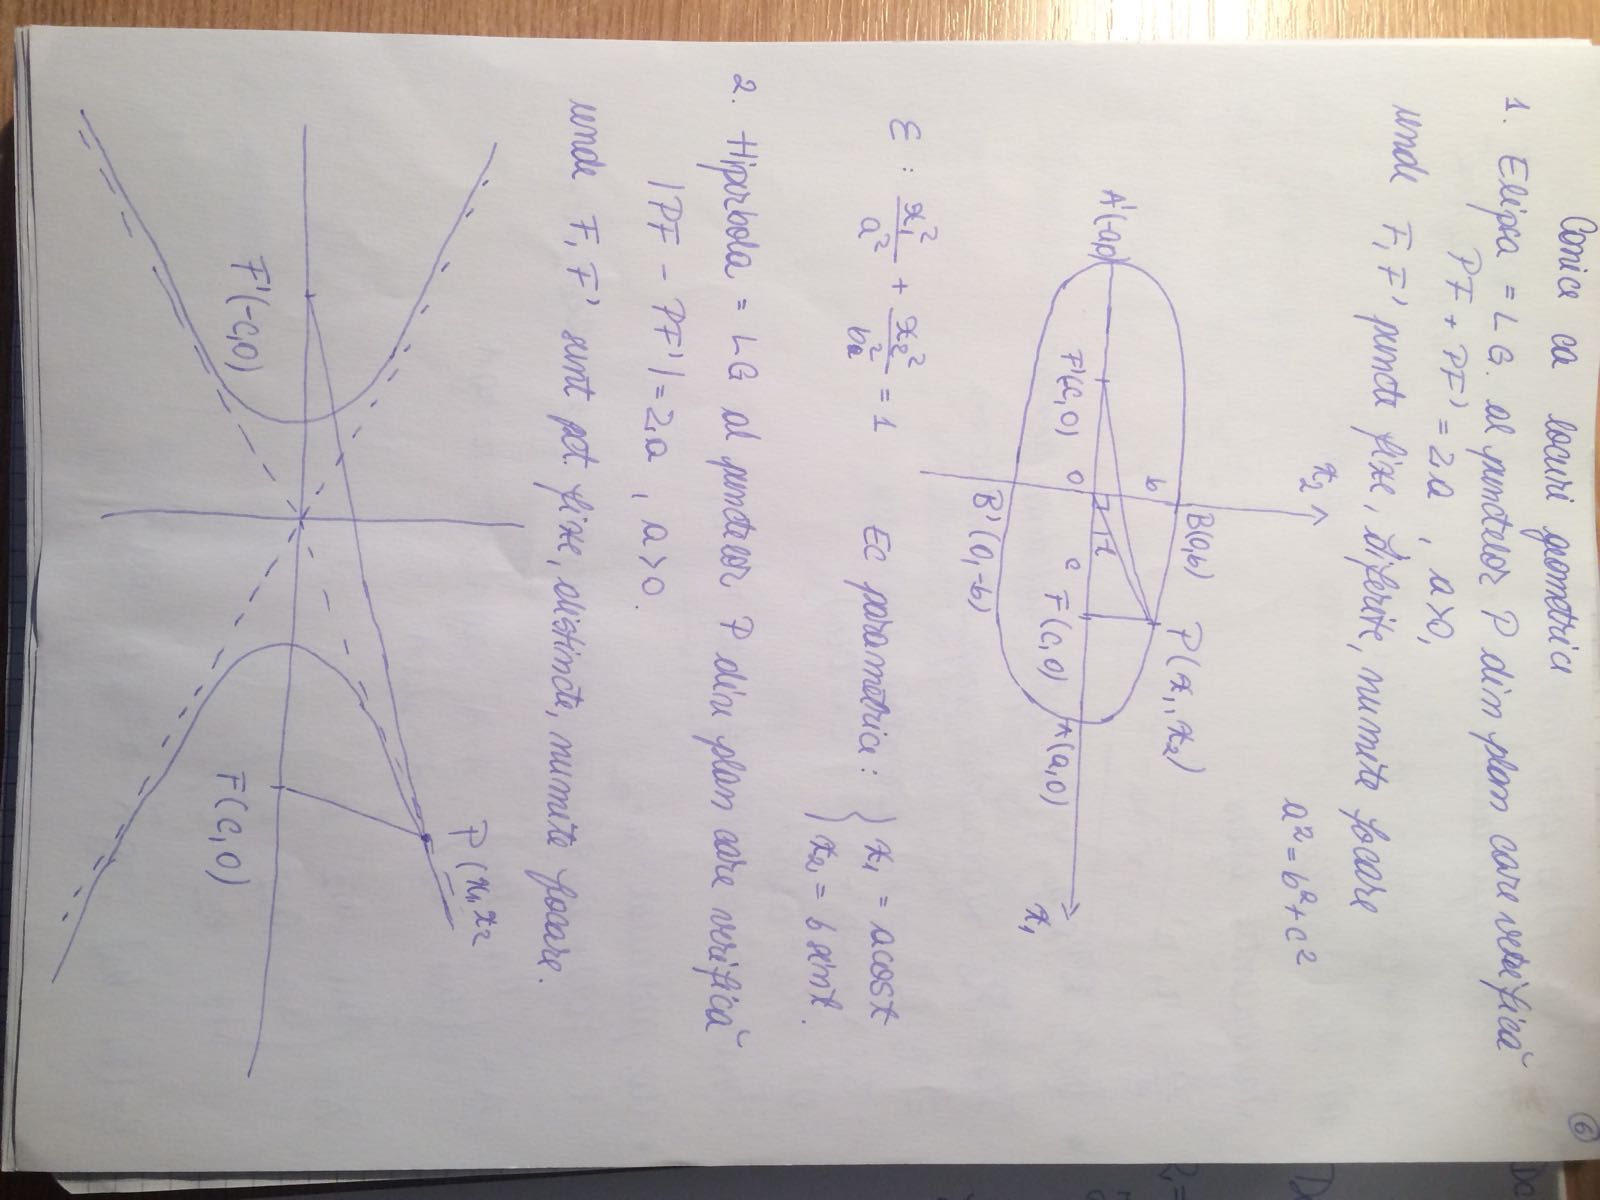 6
Conice ca locuri geometrice
1. Elipsa = LG. al punctelor P din plan care verifică
PF + PF' = 2a, a>0,
unde F, F' puncte fixe, diferite, numite focare
x₂
a² = b² + c²
B(0,b)
P(x₁, x₂)
b
A'(-a,0)
F'(-c,0)
0
t
c
F(c,0)
A(a,0)
x₁
B'(0,-b)
E: x₁²/a² + x₂²/b² = 1 Ec parametrice: { x₁ = a cos t
x₂ = b sin t.
2. Hiperbola = LG al punctelor P din plan care verifică
|PF - PF'| = 2a, a>0.
unde F, F' sunt pct. fixe, distincte, numite focare.
P(x₁, x₂
F'(-c,0)
F(c,0)